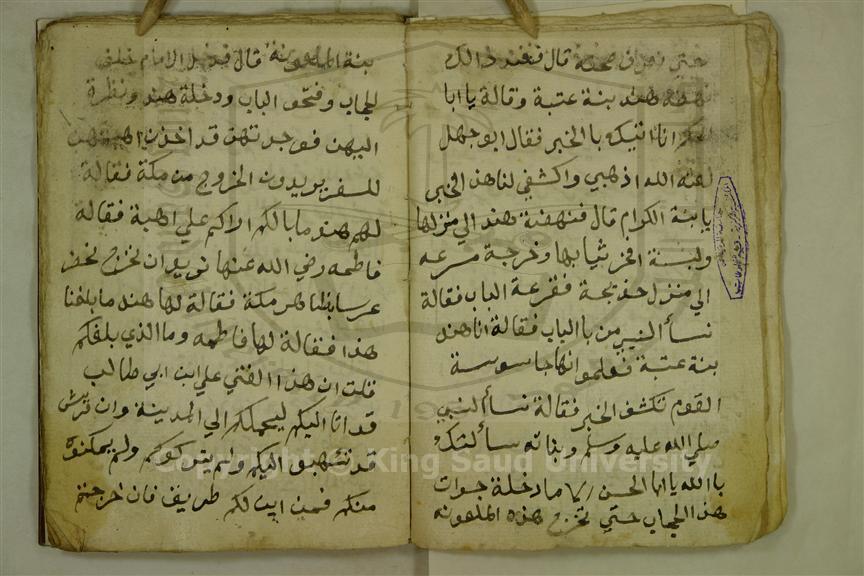 حتي نعرف صحته قال فعند ذالك
نهضة هند بنة عتبة وقالة يا ابا
الحكم انا اتيك با الخبر فقال ابو جهل
لعنه الله اذهبي واكشفي لنا هذ الخبر
يا بنة الكرام قال فنهضة هند الي منزلها
ولبسة افخر ثيابها وخرجة مسرعه
الي منزل خديجة فقرعة الباب فقالة
نساء النبي من با الباب فقالة انا هند
بنة عتبة فعلموا انها جاسوسة
القوم تكشف الخبر فقالة نساء النبي
صلي الله عليه وسلم وبناته سألتك
با الله يا ابا الحسن الا ما دخلة جوات
هذ الحجاب حتي تخرج هذه الملعونه
بنة الملعونة قال فدخل الامام خلف
الحجاب وفتحو الباب ودخلة هند ونظرة
اليهن فوجدتهن قد اخذن اهبتهن
للسفر يريدون الخروج من مكة فقالة
لهم هند ما بالكم اراكم علي اهبة فقالة
فاطمه رضي الله عنها نريد ان نخرج نحضر
عرسا بظاهر مكة فقالة لها هند ما بلغنا
هذا فقالة لها فاطمه وما الذي بلغكم
قلت ان هذا الفتي علي ابن ابي طالب
قد اتا اليكم ليحملكم الي المدينة وان قريش
قد تنهبو اليكم ولم يتركوكم ولم يمكنوه
منكم فمن اين لكم طريف فان اخرجتم
Copyright © King Saud University